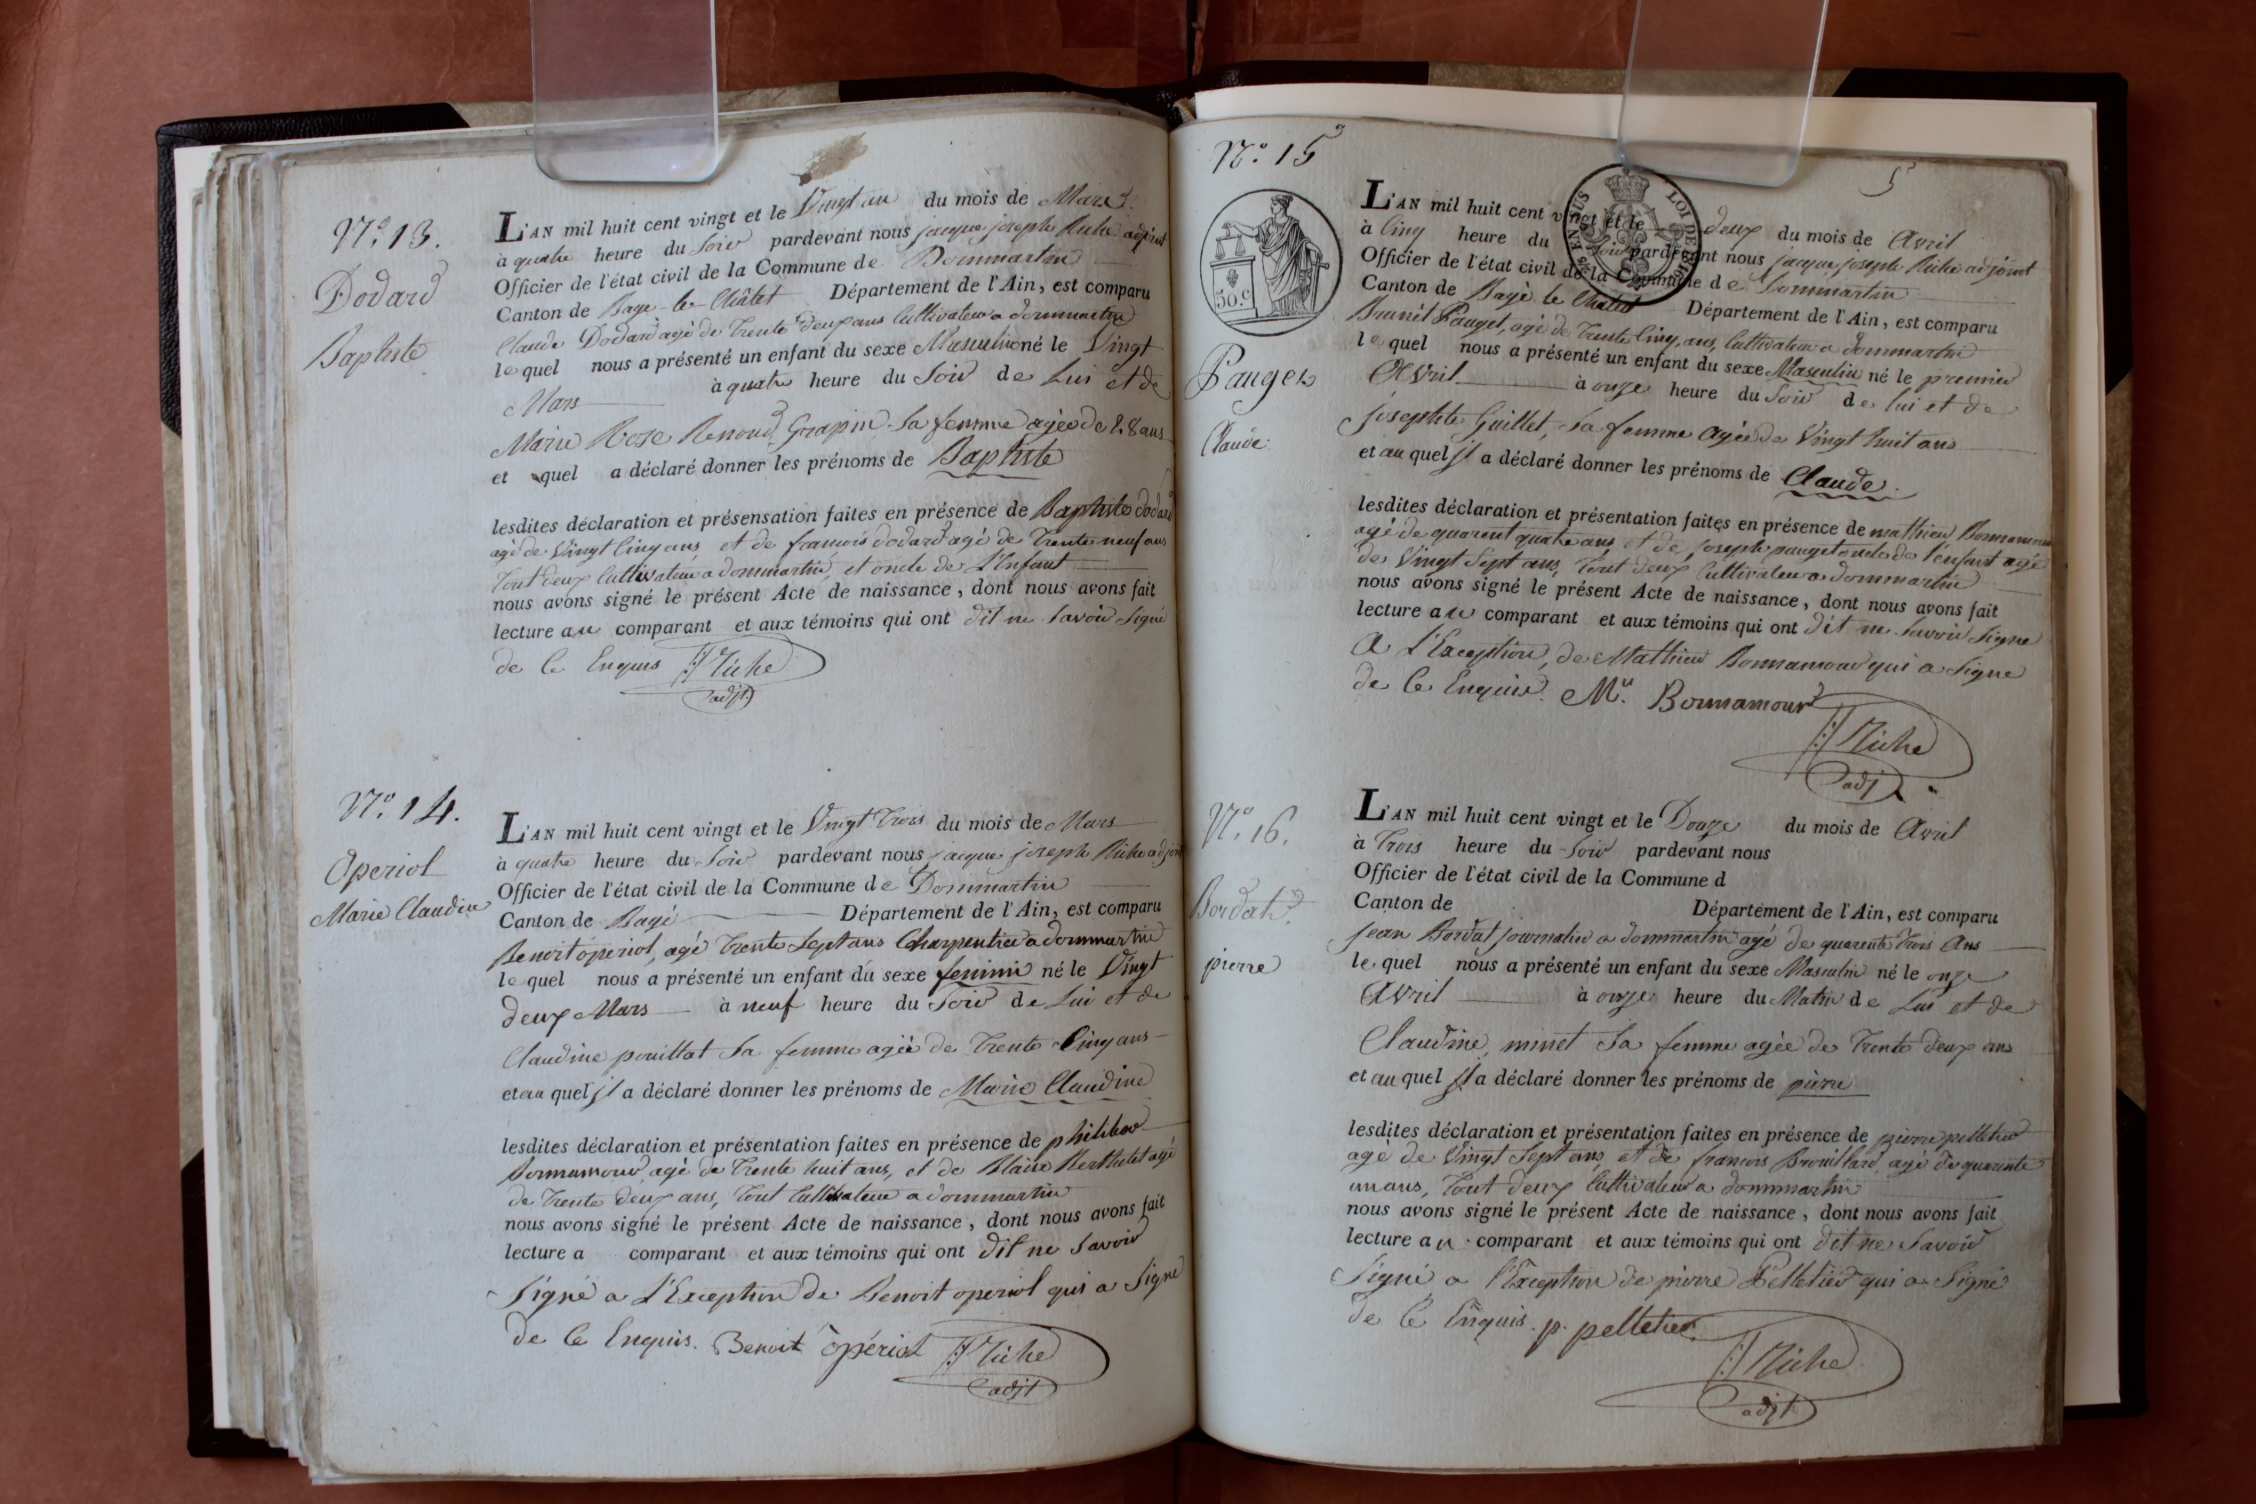 N.º 13.
Dodard
Baptiste
L'AN mil huit cent vingt et le Vingt un du mois de Mars
à quatre heure du Soir pardevant nous jacque joseph Riche adjoint
Officier de l'état civil de la Commune de Dommartin
Canton de Bage-le-Châtel Département de l'Ain, est comparu
Claude Dodard agé de Trente Deux ans Cultivateur a dommartin
lequel nous a présenté un enfant du sexe Masculin né le Vingt
Mars à quatre heure du Soir de Lui et de
Marie Roze Renoud Grapin Sa femme agée de 28 ans
et quel a déclaré donner les prénoms de Baptiste
lesdites déclaration et présensation faites en présence de Baptiste dodard
agé de Vingt Cinq ans, et de francois dodard agé de Trente neuf ans
Tout deux Cultivateur a dommartin et oncle de L'Enfant
nous avons signé le présent Acte de naissance, dont nous avons fait
lecture au comparant et aux témoins qui ont dit ne Savoir Signé
de Ce Enquis JJ Riche
adjt
N.º 14.
Operiol
Marie Claudine
L'AN mil huit cent vingt et le Vingt Trois du mois de Mars
à quatre heure du Soir pardevant nous jacque joseph Riche adjoint
Officier de l'état civil de la Commune de Dommartin
Canton de Bagé Département de l'Ain, est comparu
Benoit operiol, agé Trente Sept ans Charpentier a dommartin
lequel nous a présenté un enfant du sexe feminin né le Vingt
deux Mars à neuf heure du Soir de Lui et de
Claudine pouillat Sa femme agée de Trente Cinq ans
et au quel jl a déclaré donner les prénoms de Marie Claudine
lesdites déclaration et présentation faites en présence de philiber
Bonnamour agé de Trente huit ans, et de Blaise Berthelet agé
de Trente deux ans, Tout Cultivateur a dommartin
nous avons signé le présent Acte de naissance, dont nous avons fait
lecture a comparant et aux témoins qui ont dit ne Savoir
Signé a L'Exception de Benoit operiol qui a Signé
de Ce Enquis. Benoit opériol JJ Riche
adjt
N.º 15
5
30.C
LOI DE 1816
Pauget
Claude
L'AN mil huit cent vingt et le deux du mois de Avril
à Cinq heure du Soir pardevant nous jacque joseph Riche adjoint
Officier de l'état civil de la Commune de Dommartin
Canton de Bagé le Chatel Département de l'Ain, est comparu
Pauget, agé de Trente Cinq ans, Cultivateur a dommartin
lequel nous a présenté un enfant du sexe Masculin né le premier
Avril à onze heure du Soir de lui et de
josephte Guillet, Sa femme agée de Vingt huit ans
et au quel jl a déclaré donner les prénoms de Claude.
lesdites déclaration et présentation faites en présence de mathieu Bonnamour
agé de quarent quatre ans et de joseph pauget oncle de l'enfant agé
de Vingt Sept ans, Tout deux Cultivateur a dommartin
nous avons signé le présent Acte de naissance, dont nous avons fait
lecture au comparant et aux témoins qui ont dit ne Savoir Signe
A L'Exception, de Mathieu Bonnamour qui a Signe
de Ce Enquis. Mu. Bonnamour
JJ Riche
adj
N.º 16.
Bordat
pierre
L'AN mil huit cent vingt et le Douze du mois de Avril
à Trois heure du Soir pardevant nous
Officier de l'état civil de la Commune d
Canton de Département de l'Ain, est comparu
jean Bordat journalier a dommartin agé de quarente Trois Ans
lequel nous a présenté un enfant du sexe Masculin né le onze
Avril à onze heure du Matin de Lui et de
Claudine, minet Sa femme agée de Trente deux ans
et au quel jl a déclaré donner les prénoms de pierre
lesdites déclaration et présentation faites en présence de pierre pelletier
agé de Vingt Sept ans, et de francois Brouillard, agé de quarente
un ans, Tout deux Cultivateur a dommartin
nous avons signé le présent Acte de naissance, dont nous avons fait
lecture au comparant et aux témoins qui ont dit ne Savoir
Signé a l'Exception de pierre Pelletier qui a Signé
de Ce Enquis. p. pelletier JJ Riche
adjt